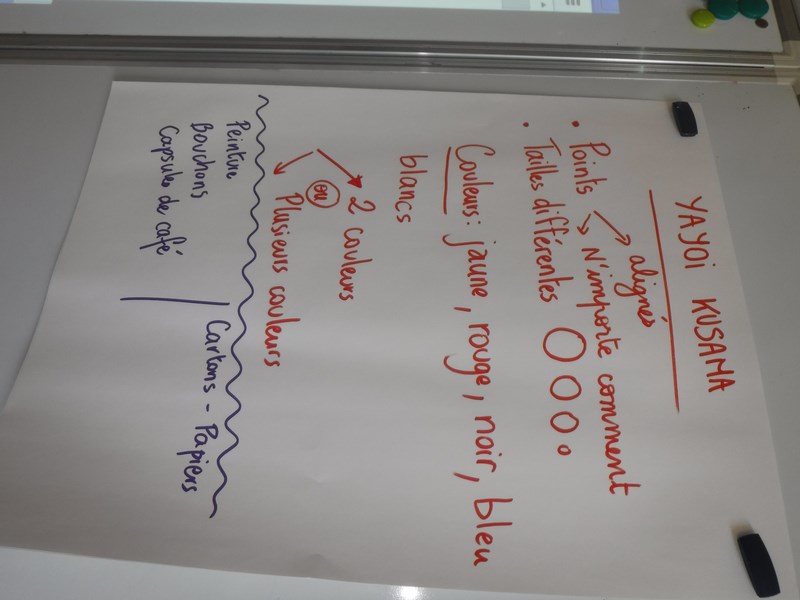 YAYOI KUSAMA
• Points → alignés
→ N'importe comment
• Tailles différentes
Couleurs: jaune, rouge, noir, bleu
blancs
→ 2 couleurs
ou
→ Plusieurs couleurs
Peinture
Bouchons
Capsules de café
Cartons - Papiers